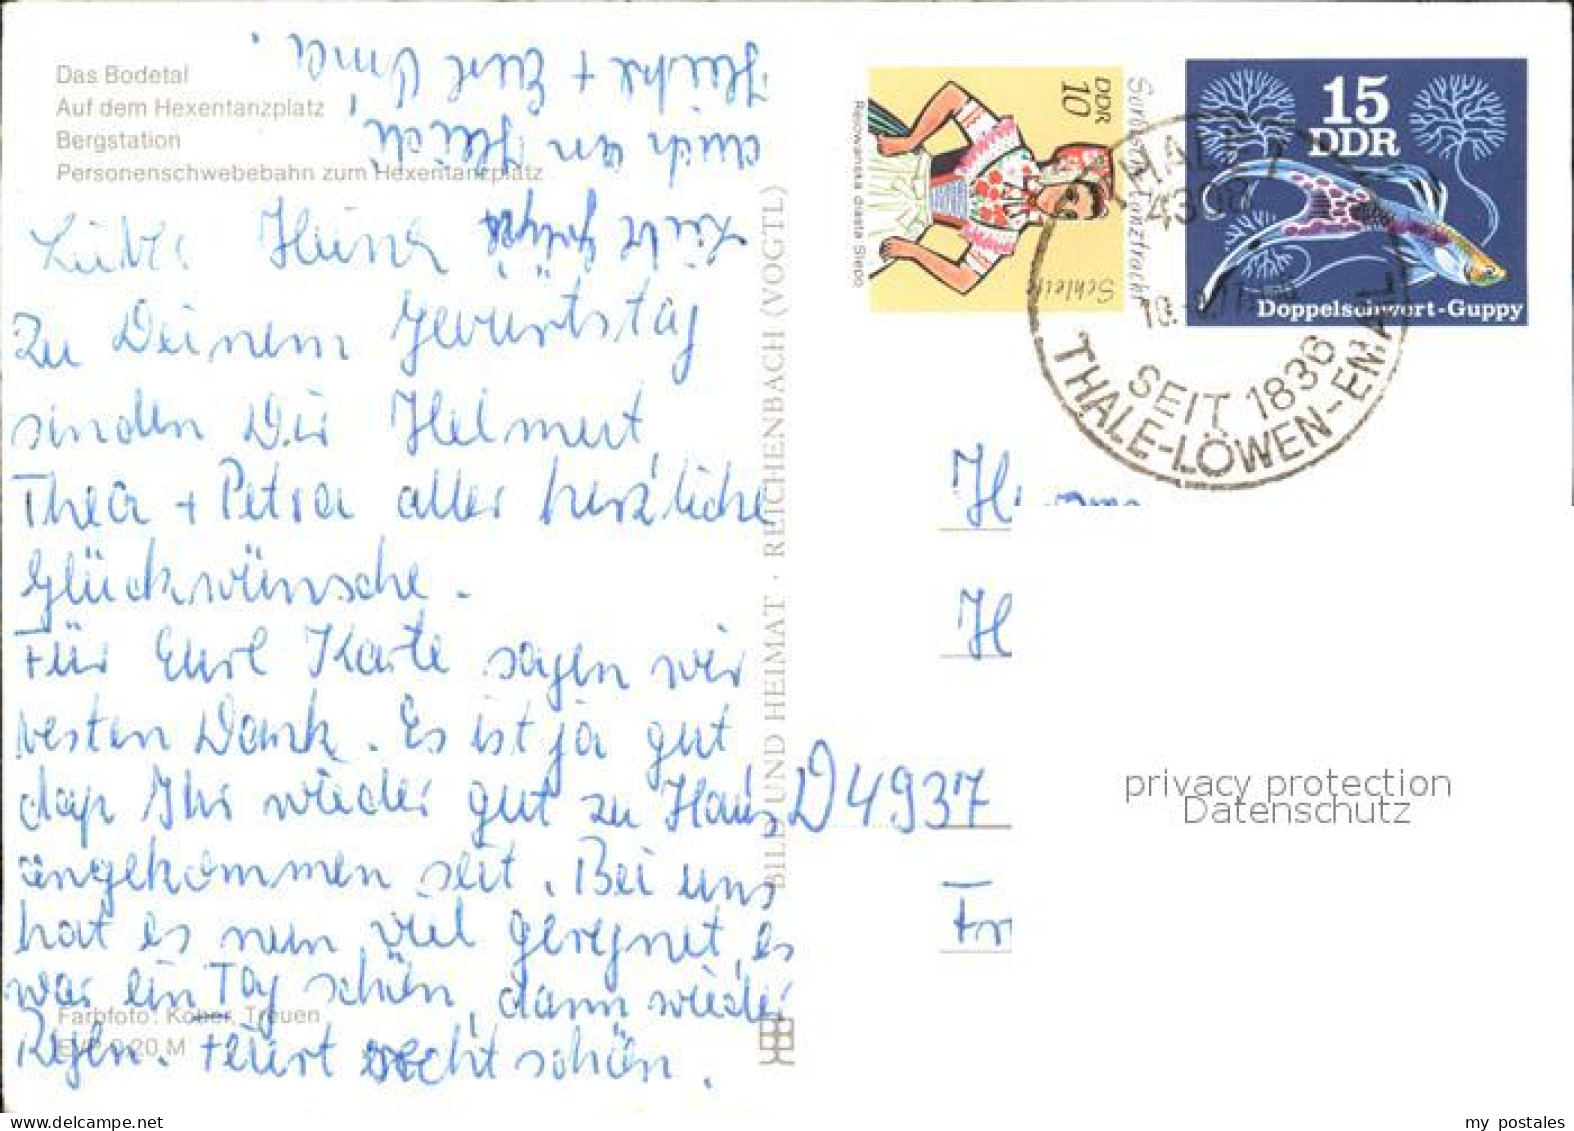 Das Bodetal
Auf dem Hexentanzplatz
Bergstation
Personenschwebebahn zum Hexentanzplatz
Zu Deinem Geburtstag
senden Dir Helmut,
Thea + Petra aller herzliche
Glückwünsche.
Für Eure Karte sagen wir
besten Dank. Es ist ja gut
daß Ihr wieder gut zu Haus
angekommen seit. Bei uns
hat es nun viel geregnet, es
war ein Tag schön, dann wieder
Regen. Feiert recht schön.
Liebe Grüße
auch an
+ Eure Oma.
Farbfoto: Kober, Treuen
EVP 0,20 M
BILD UND HEIMAT · REICHENBACH (VOGTL)
DDR
10
Schleife
Sorbische Tanztracht
Rejowanska drasta Slepo
15
DDR
Doppelschwert-Guppy
THALE
4308
SEIT 1836
THALE-LÖWEN-EMAIL
D 4937
privacy protection
Datenschutz
my postales